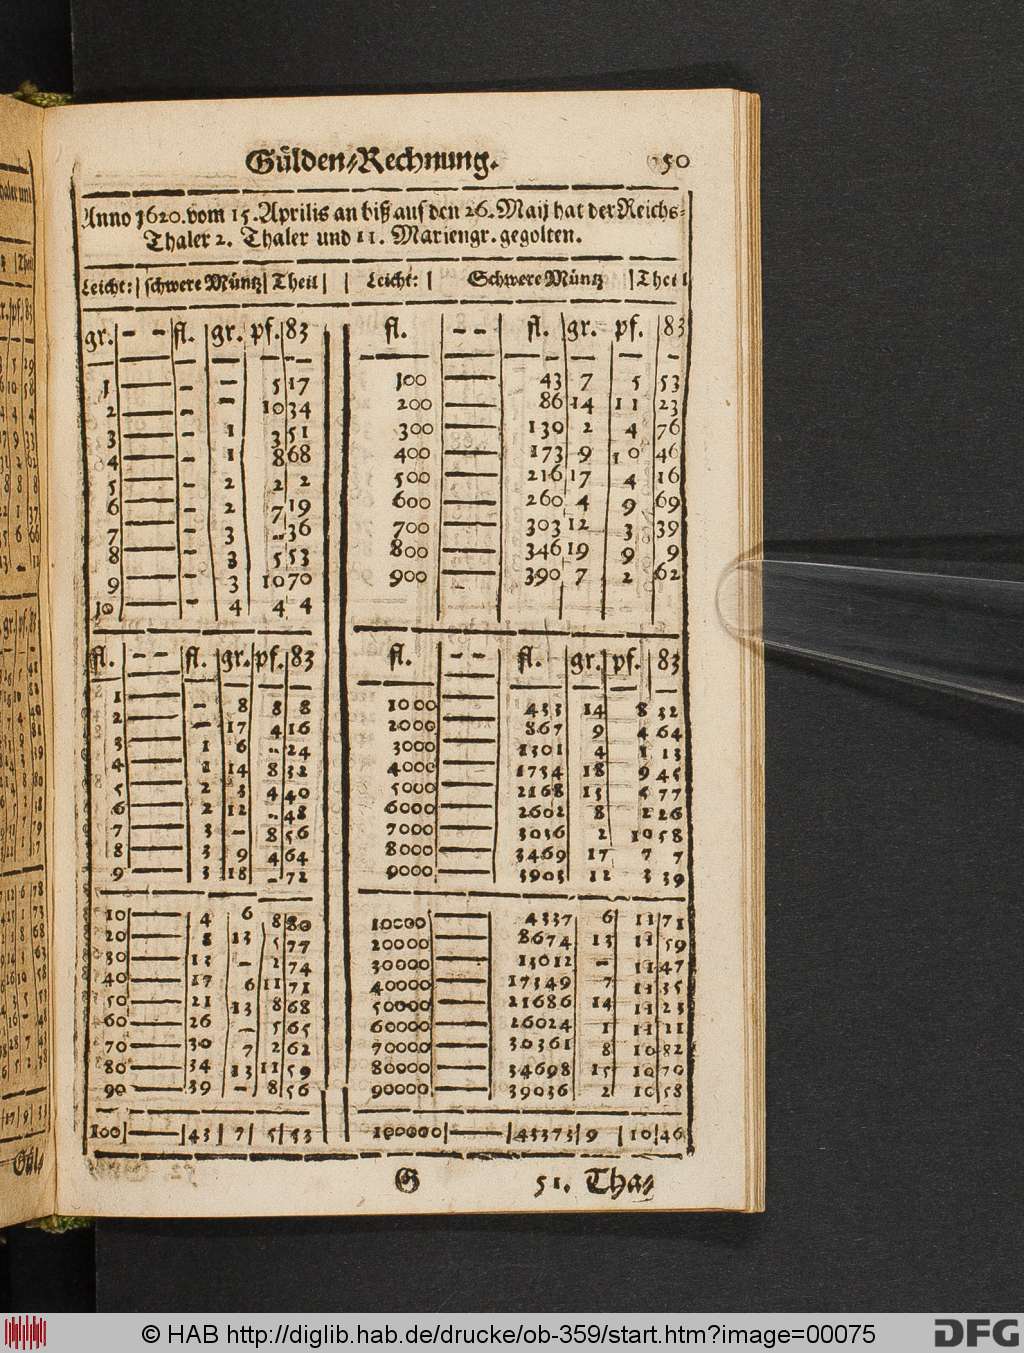 Gülden-Rechnung. 50
Anno 1620. vom 15. Aprilis an biß auf den 26. Maij hat der Reichs-
Thaler 2. Thaler und 11. Mariengr. gegolten.
Leicht: | schwere Müntz | Theil | | Leicht: | Schwere Müntz | Theil
gr. — — fl. gr. pf. 83
1 — - — 5 17
2 — - — 10 34
3 — - 1 3 51
4 — - 1 8 68
5 — - 2 2 2
6 — - 2 7 19
7 — - 3 - 36
8 — - 3 5 53
9 — - 3 10 70
10 — - 4 4 4
fl. — — fl. gr. pf. 83
1 — - 8 8 8
2 — — 17 4 16
3 — 1 6 - 24
4 — 1 14 8 32
5 — 2 3 4 40
6 — 2 12 - 48
7 — 3 - 8 56
8 — 3 9 4 64
9 — 3 18 - 72
10 — 4 6 8 80
20 — 8 13 5 77
30 — 13 — 2 74
40 — 17 6 11 71
50 — 21 13 8 68
60 — 26 — 5 65
70 — 30 7 2 62
80 — 34 13 11 59
90 — 39 — 8 56
100 — 43 7 5 53
fl. — — fl. gr. pf. 83
100 — 43 7 5 53
200 — 86 14 11 23
300 — 130 2 4 76
400 — 173 9 10 46
500 — 216 17 4 16
600 — 260 4 9 69
700 — 303 12 3 39
800 — 346 19 9 9
900 — 390 7 2 62
fl. — — fl. gr. pf. 83
1000 — 433 14 8 32
2000 — 867 9 4 64
3000 — 1301 4 1 13
4000 — 1734 18 9 45
5000 — 2168 13 5 77
6000 — 2602 8 2 26
7000 — 3036 2 10 58
8000 — 3469 17 7 7
9000 — 3903 12 3 39
10000 — 4337 6 11 71
20000 — 8674 13 11 59
30000 — 13012 — 11 47
40000 — 17349 7 11 35
50000 — 21686 14 11 23
60000 — 26024 1 11 11
70000 — 30361 8 10 82
80000 — 34698 15 10 70
90000 — 39036 2 10 58
100000 — 43373 9 10 46
G 51. Tha-
© HAB http://diglib.hab.de/drucke/ob-359/start.htm?image=00075
DFG